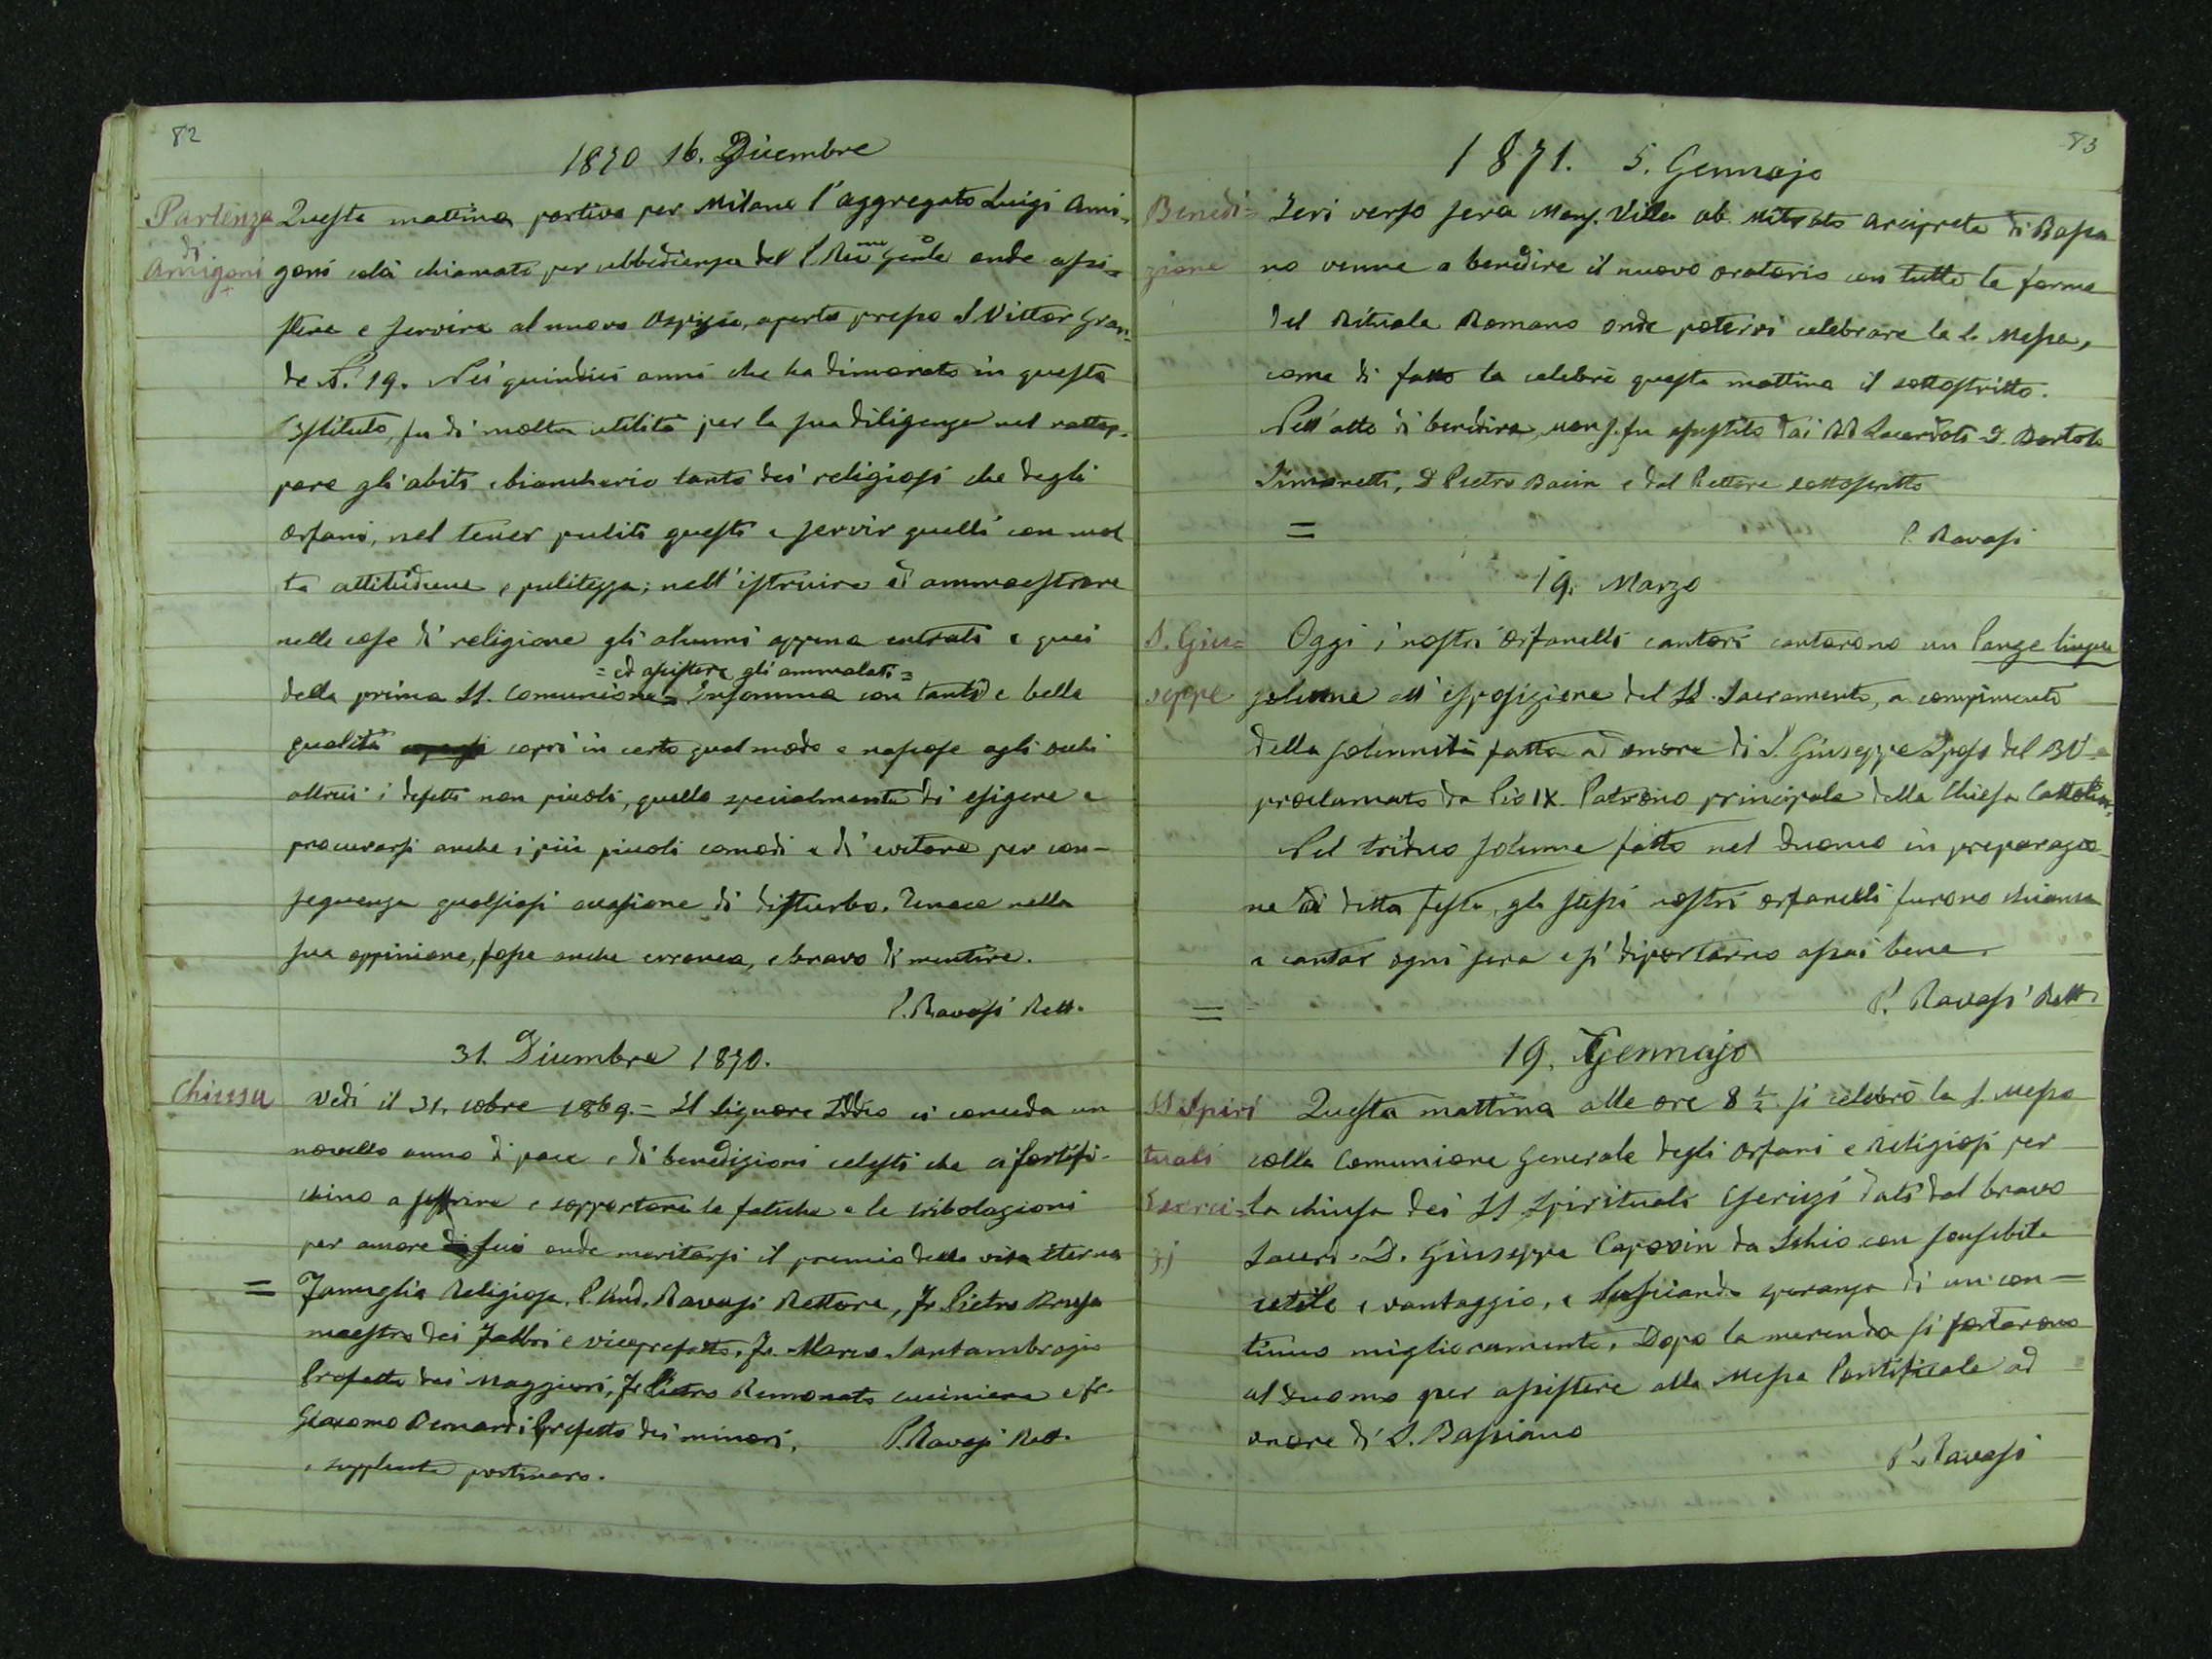 82
1870 16. Dicembre
Partenza di Amigoni
Questa mattina partiva per Milano l'aggregato Luigi Ami=
goni colà chiamato per ubbidienza del P. Rev.mo Gen.le onde assi=
stere e servire al nuovo Ospizio, aperto presso S Vittor Gran=
de N. 19. Nei quindici anni che ha dimorato in questo
Istituto, fu di molta utilità per la sua diligenza nel rattop-
pare gli abiti e biancheria tanto dei religiosi che degli
orfani, nel tener puliti questi e servir quelli con mol
ta attitudine e pulitezza; nell'istruire ed ammaestrare
nelle cose di religione gli alunni appena entrati e quei
= ed assistere gli ammalati =
della prima SS. Comunione = Insomma con tante e belle
qualità coprì in certo qual modo e nascose agli occhi
altrui i difetti non piccoli, quello specialmente di esigere e
procurarsi anche i più piccoli comodi e di evitare per con-
seguenza qualsiasi occasione di disturbo. Tenace nella
sua oppinione, fosse anche erronea, e bravo di mentire.
P. Ravasi Rett.
31. Dicembre 1870.
Chiusa
Vedi il 31. xbre 1869. = Il Signore Iddio ci conceda un
novello anno di pace e di benedizioni celesti che ci fortifi-
chino a soffrire e sopportare le fatiche e le tribolazioni
per amore suo onde meritarsi il premio della vita eterna
= Famiglia Religiosa. P. And. Ravasi Rettore, Fr. Pietro Brusa
maestro dei fabbri e viceprefetto, Fr. Marco Santambrogio
Prefetto dei Maggiori, Fr Pietro Remonato cuciniere e fr.
Giacomo Bernardi Prefetto dei minori, P. Ravasi Rett.
e supplente portinaro.
83
1871. 5. Gennajo
Benedi=
zione
Ieri verso sera Mons. Villa ab. Mitrato Arciprete di Bassa
no venne a benedire il nuovo oratorio con tutte le forme
del Rituale Romano onde potervi celebrare la S. Messa,
come di fatto la celebrò questa mattina il sottoscritto.
Nell'atto di benedire, mons. fu assistito dai RR Sacerdoti D. Bortolo
Simonetti, D Pietro Bacin e dal Rettore sottoscritto
= P. Ravasi
19. Marzo
S. Giu=
seppe
Oggi i nostri orfanelli cantori cantarono un Pange lingua
solenne all'esposizione del SS. Sacramento, a compimento
della solennità fatta ad onore di S. Giuseppe Sposo del BV.
proclamato da Pio IX. Patrono principale della Chiesa Cattolica.
Nel triduo solenne fatto nel Duomo in preparazio
ne di detta festa, gli stessi nostri orfanelli furono chiamati
a cantar ogni sera e si diportarono assai bene.
= P. Ravasi Rett.
19. Gennajo
SS Spiri
tuali
Eserci=
zj
Questa mattina alle ore 8 ½ si celebrò la S. Messa
colla Comunione Generale degli Orfani e Religiosi per
la chiusa dei SS Spirituali Esercizi dati dal bravo
Sacerd. D. Giuseppe Capovin da Schio con sensibile
utile e vantaggio, e lasciando speranza di un con=
tinuo miglioramento. Dopo la merenda si portarono
al Duomo per assistere alla Messa Pontificale ad
onore di S. Bassiano
P. Ravasi